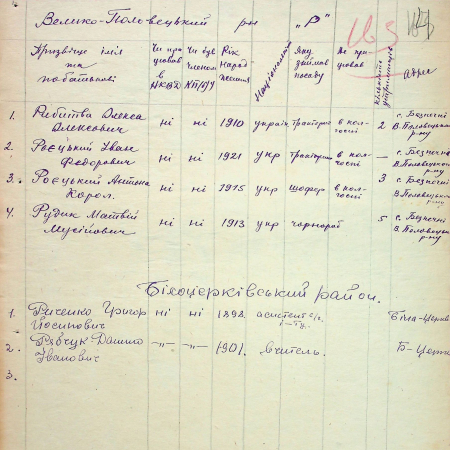 Велико-Половецький р-н „Р“
165
Прізвище імія та по батькові Чи працював в НКВД Чи був членом КП/б/У Рік народження Національність Яку займав посаду Де працював Кількість утриманців адрес
1. Олекса Олексович ні ні 1910 україн. тракторист в колгоспі 2 с. Безпечні В. Половецького р-ну
2. Роєцький Іван Федорович ні ні 1921 укр тракторист в колгоспі — с. Безпечне В. Половецького р-ну
3. Роєцький Антон Карол. ні ні 1915 укр шофер в колгоспі 3 с. Безпечні В. Половецьк. р-ну
4. Рудик Матвій Мусійович ні ні 1913 укр чорнораб 5 с. Безпечні В. Половецьк. р-ну
Білоцерківський район.
1. Григор Йосипович ні ні 1898. асистент Біла-Церква
2. Рябчук Данило Іванович —„— —„— 1901. вчитель. Б-Церква
3.